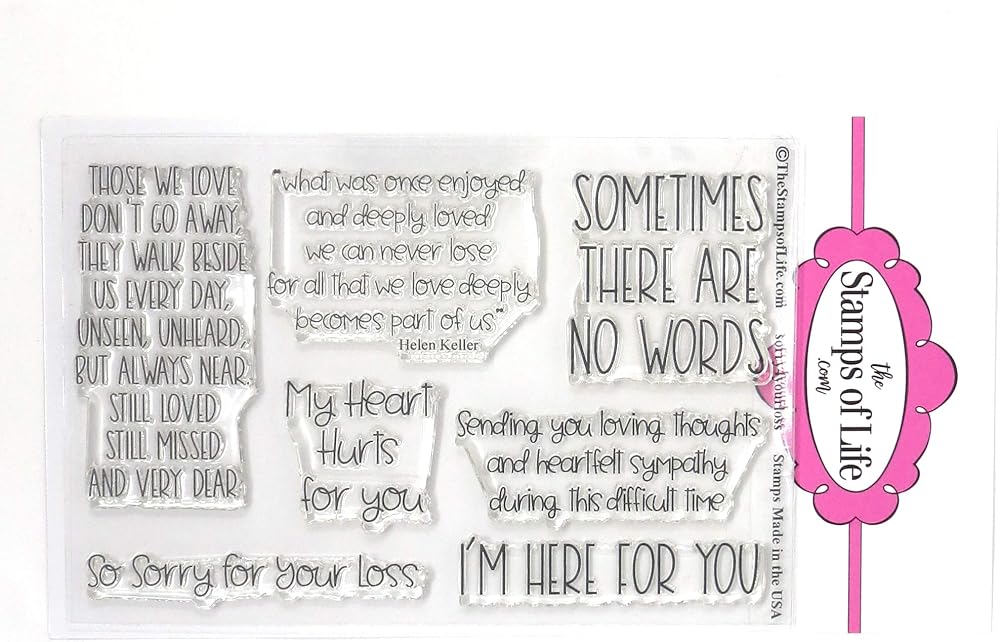 THOSE WE LOVE
DON'T GO AWAY,
THEY WALK BESIDE
US EVERY DAY,
UNSEEN, UNHEARD,
BUT ALWAYS NEAR.
STILL LOVED
STILL MISSED
AND VERY DEAR.
"what was once enjoyed
and deeply loved
we can never lose
for all that we love deeply
becomes part of us"
Helen Keller
SOMETIMES
THERE ARE
NO WORDS.
My Heart
Hurts
for you
Sending you loving thoughts
and heartfelt sympathy
during this difficult time
So Sorry for your Loss.
I'M HERE FOR YOU
©TheStampsofLife.com sorry4yourloss Stamps Made in the USA
the
Stamps of Life
.com